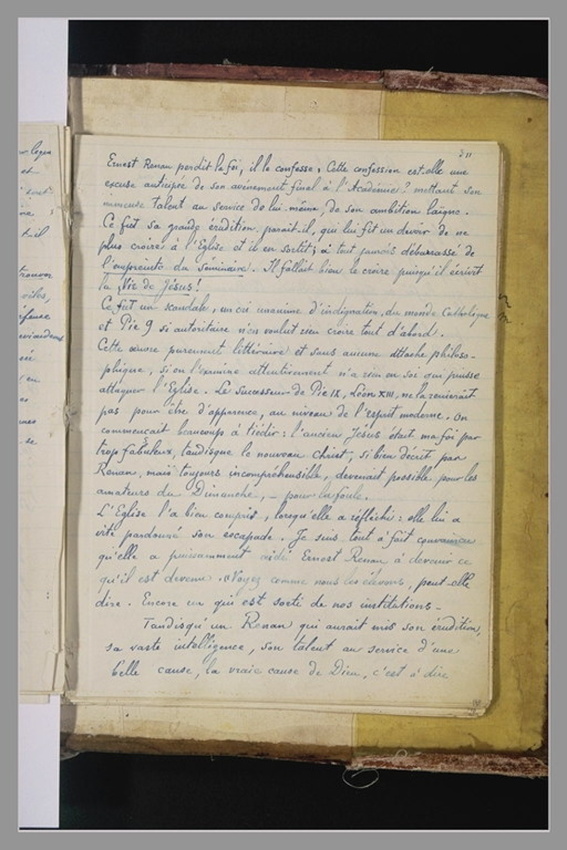 211
Ernest Renan perdit la foi, il le confesse, Cette confession est-elle une
excuse anticipée de son avènement final à l'Académie ? mettant son
immense talent au service de lui-même, de son ambition laïque.
Ce fut sa grande érudition, parait-il, qui lui fit un devoir de ne
plus croire à l'Eglise et il en sortit; à tout jamais débarrassé de
l'empreinte du Séminaire. Il fallait bien le croire puisqu'il écrivit
la Vie de Jésus !
Ce fut un scandale, un cri unanime d'indignation, du monde Catholique
et Pie 9 si autoritaire n'en voulut rien croire tout d'abord.
Cette œuvre purement littéraire et sans aucune attache philoso-
phique, si on l'examine attentivement n'a rien en soi qui puisse
attaquer l'Eglise. Le successeur de Pie IX, Léon XIII, ne la renierait
pas pour être d'apparence, au niveau de l'esprit moderne. On
commençait beaucoup à tiédir : l'ancien Jésus était ma foi par
trop fabuleux, tandisque le nouveau christ, si bien décrit par
Renan, mais toujours incompréhensible, devenait possible pour les
amateurs du Dimanche, – pour la foule.
L'Eglise l'a bien compris, lorsqu'elle a réfléchi : elle lui a
vite pardonné son escapade. Je suis tout à fait convaincu
qu'elle a puissamment aidé Ernest Renan à devenir ce
qu'il est devenu. Voyez comme nous les élevons, peut-elle
dire. Encore un qui est sorti de nos institutions –
Tandisqu'un Renan qui aurait mis son érudition,
sa vaste intelligence, son talent au service d'une
belle cause, la vraie cause de Dieu, c'est à dire